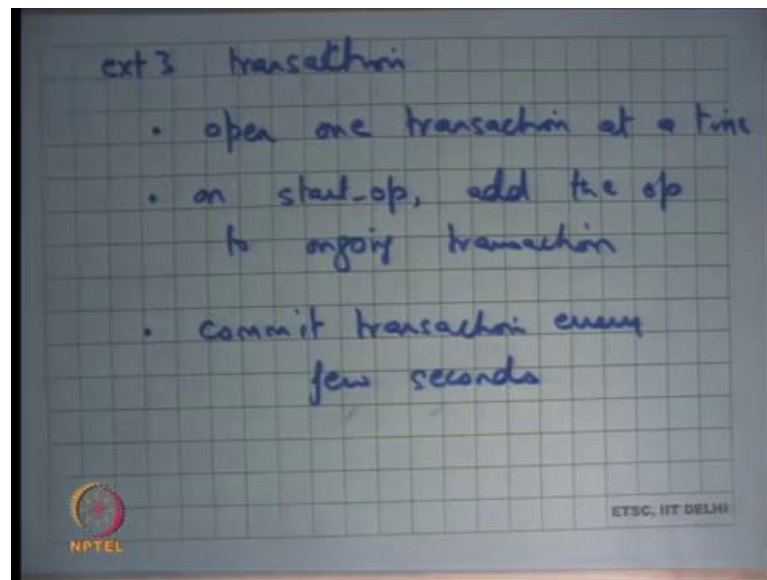 ext3 transaction
• open one transaction at a time
• on start-op, add the op
to ongoing transaction
• commit transaction every
few seconds
ETSC, IIT DELHI
NPTEL